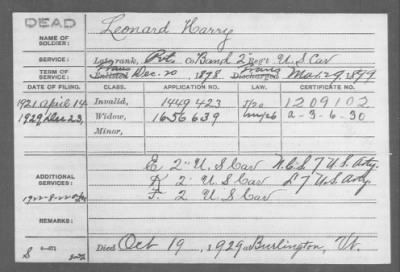 DEAD
NAME OF SOLDIER: Leonard Harry
SERVICE: Late rank, Pvt. Co. Band 2" Regt U.S. Cav
TERM OF SERVICE: Trans Enlisted Dec. 20, 1898 Trans Discharged Mar. 29, 1899
DATE OF FILING. CLASS. APPLICATION NO. LAW. CERTIFICATE NO.
1921 April 14 Invalid, 1449423 1209102
1929 Dec 23, Widow, 1656639 a-3-6-30
Minor,
ADDITIONAL SERVICES:
E 2" U.S Cav N.C.S. 7 U.S. Arty.
K 2" U.S Cav L 7 U.S. Arty.
F 2" U.S Cav
REMARKS:
Died Oct 19, 1929 at Burlington, Vt.